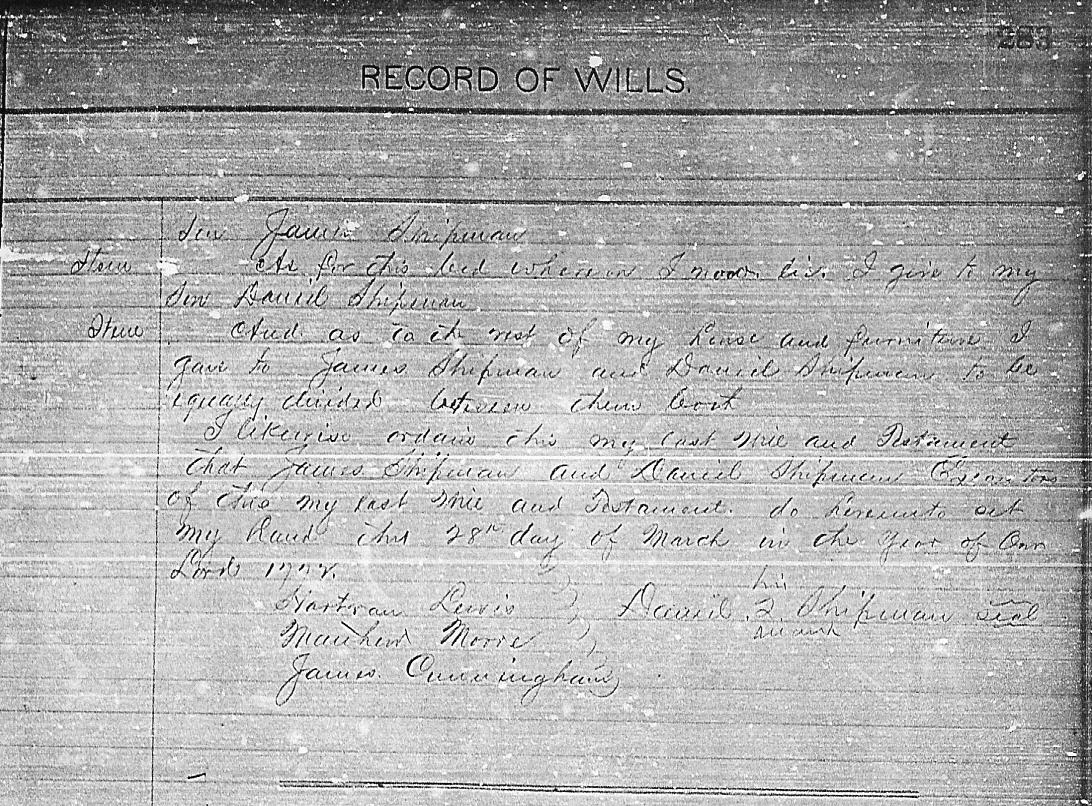 283
RECORD OF WILLS.
Son James Shipman
Item As for this bed wherein I now lie. I give to my
Son David Shipman
Item And as to the rest of my house and furniture I
gave to James Shipman and David Shipman to be
equaly divided between them both
I likewise ordain this my last Will and Testament
that James Shipman and Daniel Shipman Executors
of this my last Will and Testament. do hereunto set
my hand this 28th day of March in the Year of Our
Lord
Hartman Lewis
his
Daniel 2 Shipman seal
mark
Matthew Moore
James Cunningham